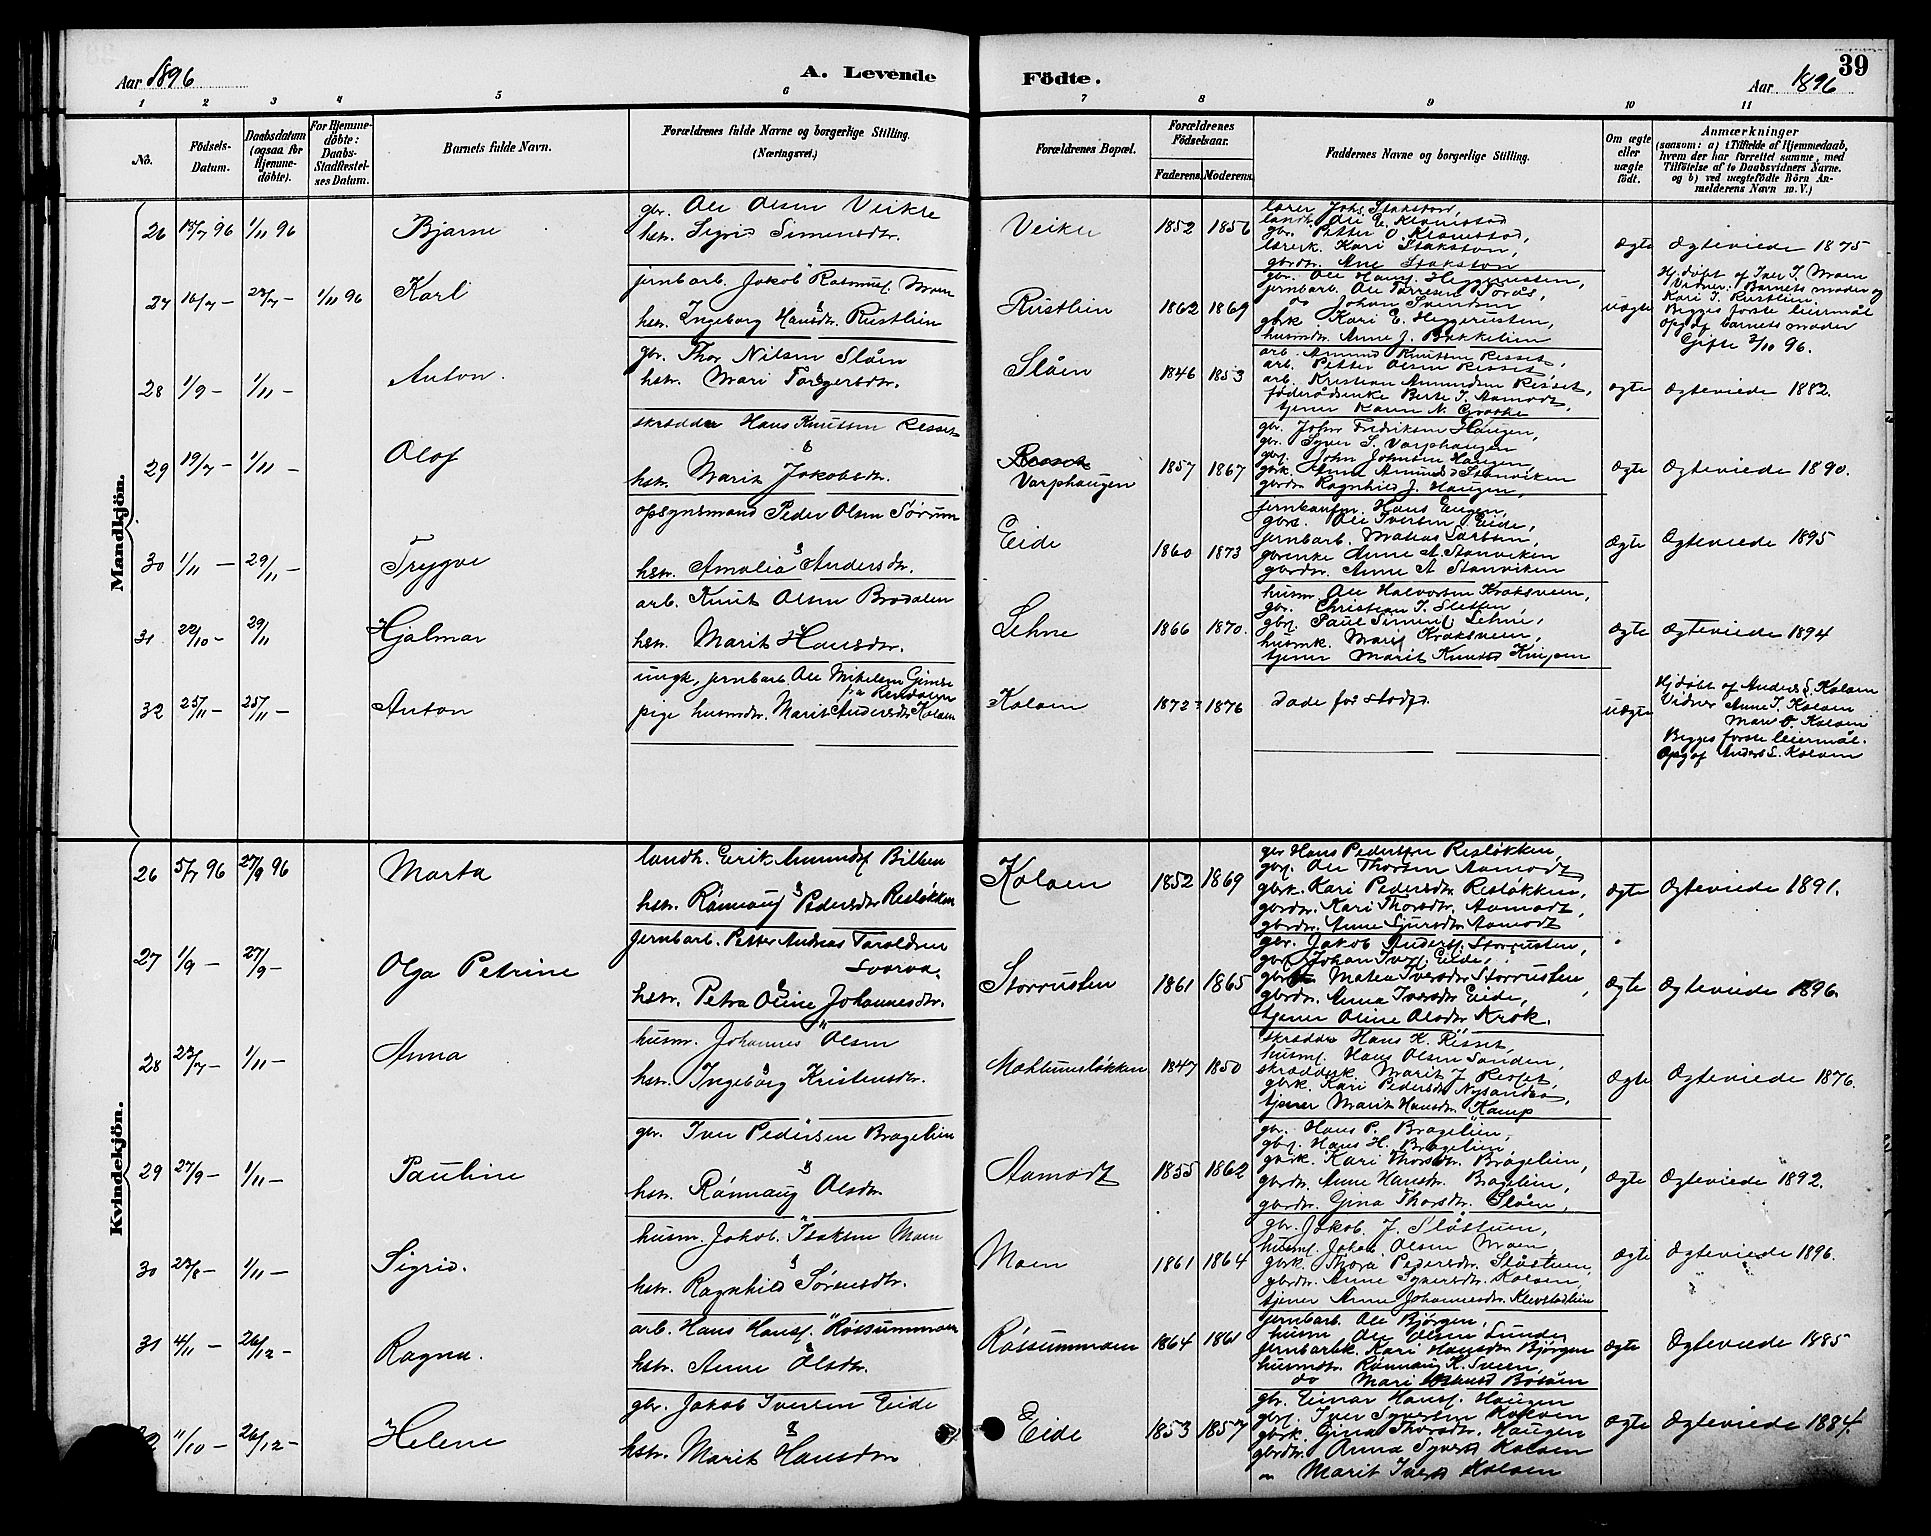 Aar 1896
A. Levende
Födte.
Aar 1896
39
1 2 3 4 5 6 7 8 9 10 11
No.
Födsels-
Datum.
Daabsdatum
(ogsaa for
Hjemme-
döbte).
For Hjemme-
döbte:
Daabs-
Stadfæstel-
ses Datum.
Barnets fulde Navn.
Forældrenes fulde Navne og borgerlige Stilling.
(Næringsvei.)
Forældrenes Bopæl.
Forældrenes
Födselsaar.
Faderens. Moderens.
Faddernes Navne og borgerlige Stilling.
Om ægte
eller
uægte
födt.
Anmærkninger
(saasom: a) i Tilfælde af Hjemmedaab,
hvem der har forrettet samme, med
Tilföielse af to Daabsvidners Navne.
og b) ved uægtefödte Börn An-
melderens Navn m. V.)
Mandkjön.
26 15/7 96 1/11 96 Bjarne
gbr. Ole Olsen Veikle
hstr. Sigrid Simensdtr.
Veikle 1852 1856
lærer Johs Stakston,
landh. Ole E. Klomstad
gbr. Petter O. Klomstad,
lærerk. Kari Stakston,
gbrdtr. Ane Stakston
ægte Ægteviede 1875
27 16/7 - 23/7 - 1/11 96 Karl
jernbarb. Jakob Rasmusf. Moen
&
hstr. Ingeborg Hansdtr. Rustlien
Rustlien 1862 1869
gbr. Ole Hansf. Heggerusten,
jernbarb. Ole Torresen Torås,
do Johan Svendsen
gbrk. Kari E. Heggerusten,
husmdtr. Anne J. Bakkelien
uægte
Hj.døbt af Iver I. Moen
Vidner: Barnets moder og
Kari I. Rustlien.
Begges første leiermål
Opg. af barnets moder
Gifte 3/10 96.
28 1/9 - 1/11 - Anton.
gbr. Thor Nilsen Slåen
&
hstr. Mari Torgersdtr.
Slåen 1846 1853
arb. Amund Knutsen Risset,
arb. Petter Olsen Risset,
arb. Kristian Amundsen Risset,
føderådsenke Berte I. Aamodt,
tjener Karen N. Graahe
ægte Ægteviede 1882.
29 19/7 - 1/11 - Olaf
skrædder Hans Knutsen Risset
&
hstr. Marit Jakobsdtr.
Varphaugen 1857 1867
gbr. Johs Fredriksen Haugen,
gbr. Syver S. Varphaugen
gbsf. John Johnsen Haugen,
gbrk. Anne Amundsd Stamviken
gbrdtr. Ragnhild J. Haugen,
ægte Ægteviede 1890.
30 1/11 - 29/11 - Trygve
opsynsmand Peder Olsen Sørum
&
hstr. Amalia Andersdtr.
Eide 1860 1873
jernbanfm. Hans Engen,
gbrs. Ole Iversen Eide,
jernbarb. Matias Larsen,
gbrenke Anne A. Stamviken
gbrdtr. Anne A Stamviken
Ægte Ægteviede 1895
31 22/10 - 29/11 Hjalmar
arb. Knut Olsen Brodalen
&
hstr. Marit Hansdtr.
Lehne 1866 1870.
husm Ole Halvorsen Kroksveen,
gbr. Christian J. Sletten,
gbsf. Paul Simensf. Lehne,
husmk. Mari Kroksveen,
tjener Marit Knutsd
ægte Ægteviede 1894
32 25/11 - 25/11 - Anton
ungk, jernbarb. Ole Mikelsen Gimse
fra Rendalen
pige husmdtr. Marit Andersdtr Koloen
Koloen 1872 1876
Døde før stadf.
uægte
Hj.døbt af Anders S. Koloen
Vidner Anne I. Koloen
Mari O. Koloen
Begges første leiermål.
Opg. af Anders S. Koloen
Kvindekjön.
26 5/7 96 27/9 96 Marta
landh. Erik Amundsf Billen
&
hstr. Rønnaug Pedersdtr Resløkken
Koloen 1852 1869
gbr Hans Pedersen Resløkken
gbsf. Ole Thorsen Aamodt
gbrk. Kari Pedersdtr Resløkken,
gbrdtr. Kari Thorsdtr. Aamodt,
gbrdtr. Anne Sjursdtr Aamodt
ægte Ægteviede 1891.
27 1/9 - 27/9 - Olga Petrine
jernbarb. Petter Andreas Taroldsen
Svarva.
&
hstr. Petra Oline Johannesdtr.
Storrusten 1861 1865
gbr. Jakob Andersf. Storrusten,
gbsf. Johan Iversf. Eide,
gbrk Matea Iversdtr Storrusten,
gbrdtr. Anna Iversdtr Eide,
tjener Oline Olsdtr Krok.
ægte Ægteviede 1896.
28 23/7 - 1/11 - Anna
husm. Johannes Olsen
&
hstr. Ingeborg Kristensdtr.
Mæhlumsløkken 1847 1850
skrædder Hans K. Risset,
husmf. Hans Olsen Sanden,
skrædderk. Marit J. Risset,
gbrk. Kari Pedersdtr Nysanden,
tjener Marit Hansdtr. Kamp
ægte Ægteviede 1876.
29 27/9 - 1/11 - Pauline
gbr. Iver Pedersen Bragelien
&
hstr. Rønnaug Olsdtr
Aamodt 1855 1862
gbr. Hans P. Bragelien,
gbsf. Hans H. Bragelien,
gbrk. Kari Thorsdtr. Bragelien,
gbrdtr. Anne Hansdtr. Bragelien,
gbrdtr. Gina Thorsdtr. Slåen,
ægte Ægteviede 1892.
30 23/8 - 1/11 - Sigrid.
husm. Jakob Isaksen Moen
&
hstr. Ragnhild Sørensdtr.
Moen 1861 1864
gbr. Jakob. J. Slåstuen,
husmf. Johan Olsen Moen,
gbrk. Thora Pedersdtr. Slåstuen,
gbrdtr. Anne Syversdtr. Koloen,
tjener Anne Johannesdtr. Klevstadlien
ægte Ægteviede 1896.
31 4/11 - 26/12 - Ragna.
arb. Hans Hansf. Røssummoen
&
hstr. Anne Olsdtr.
Røssummoen 1864 1861
jernbarb. Ole Bjørgen,
husm Ole Olsen Lunde,
jernbarbk. Kari Hansdtr Bjørgen
husmdtr. Rønnaug K. Sveen,
do Mari
ægte Ægteviede 1885
11/10 - 26/12 - Helene
gbr. Jakob Iversen Eide
&
hstr. Marit Hansdtr
Eide 1853 1857
gbr. Einar Hansf. Haugen
gbsf. Iver Syversen Koloen
gbrk. Gina Thorsdtr. Haugen
gbrdtr. Anna Syversd Koloen
" Marit Iversd Koloen
ægte Ægteviede 1884.